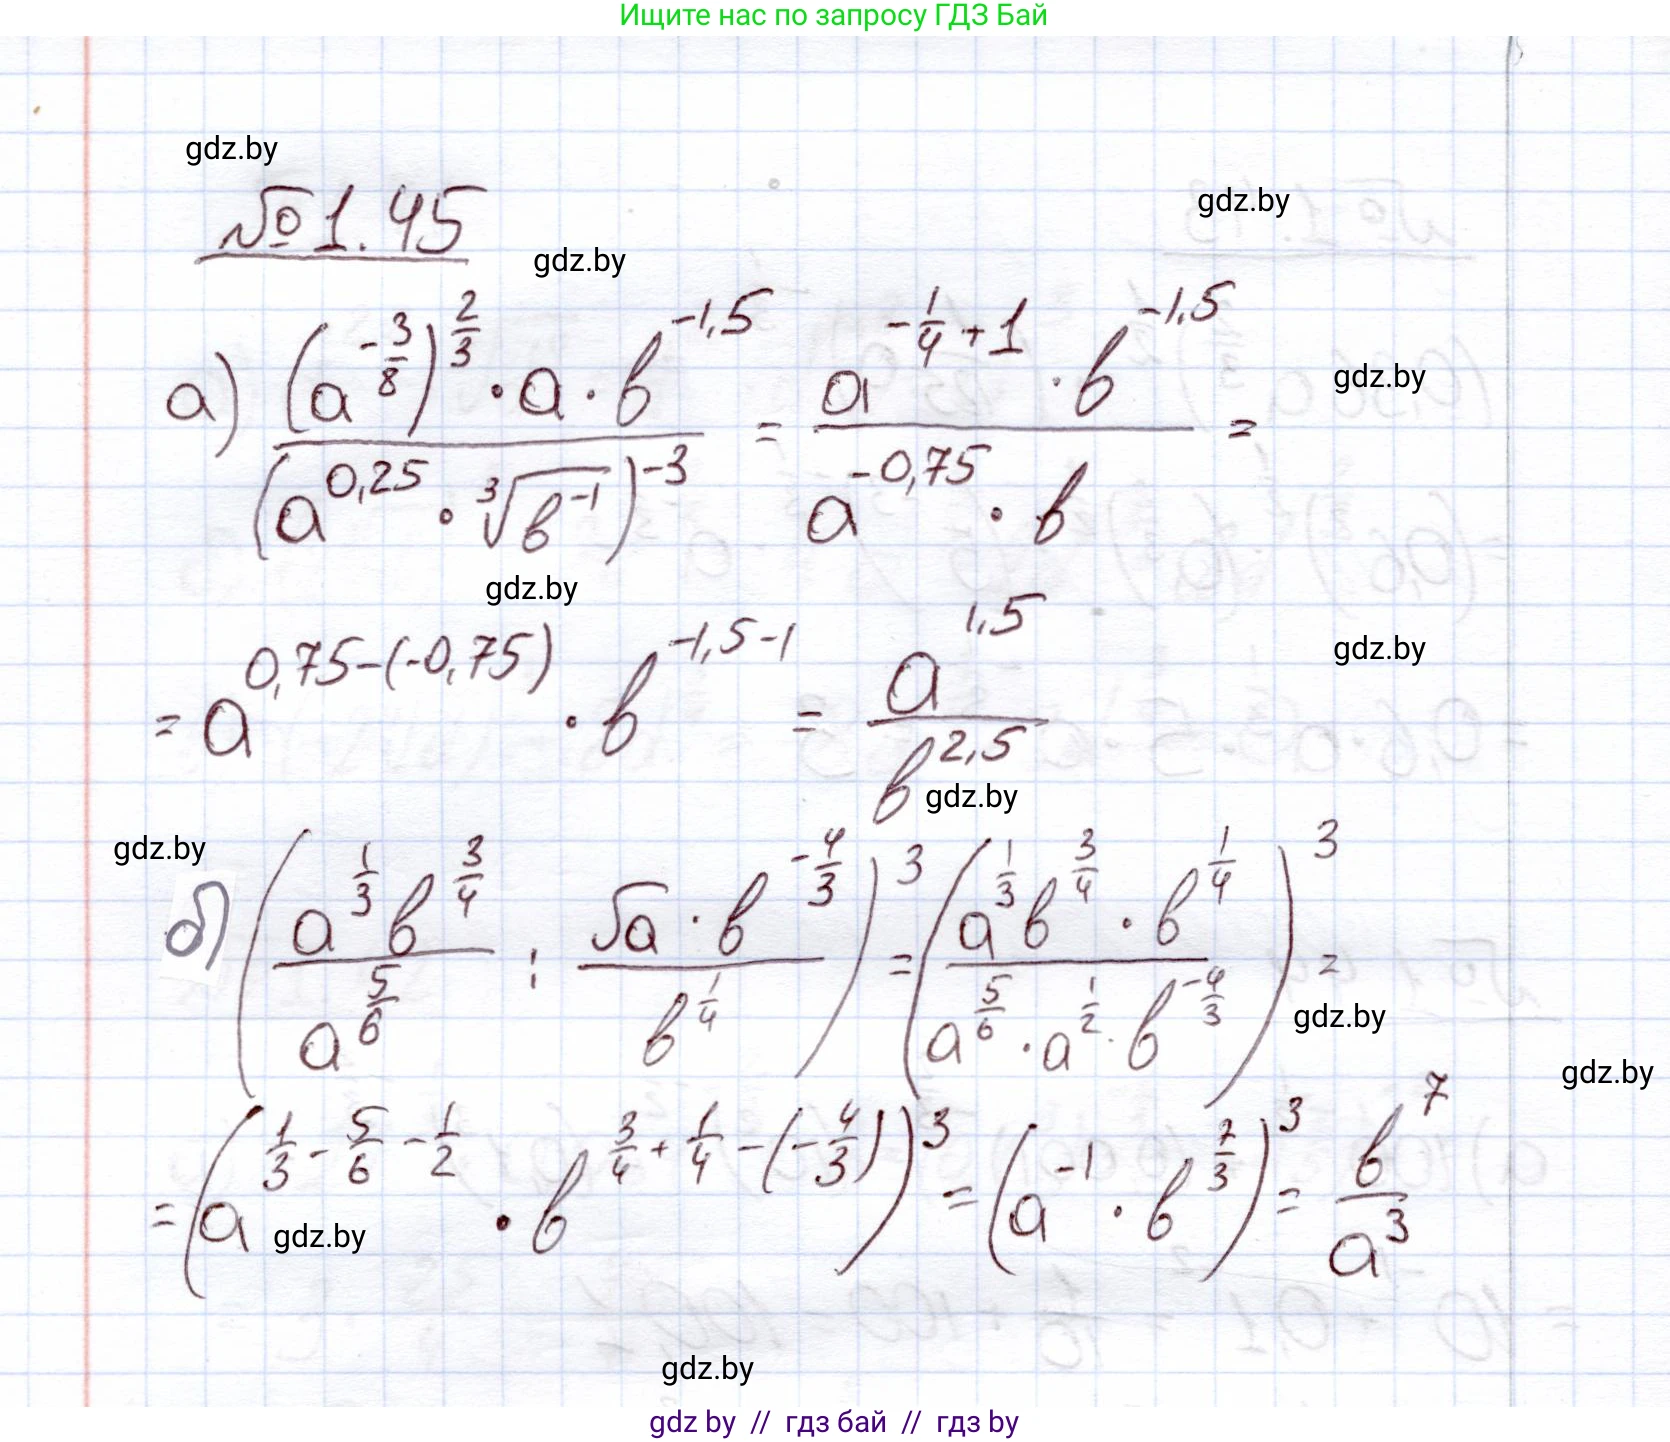 Ищите нас по запросу ГДЗ Бай
gdz.by
gdz.by
№ 1.45
gdz.by
а) ((a^(-3/8))^(2/3) · a · b^(-1,5)) / (a^(0,25) · ∛(b^(-1)))^(-3) = (a^(-1/4+1) · b^(-1,5)) / (a^(-0,75) · b) =
gdz.by
gdz.by
gdz.by
= a^(0,75-(-0,75)) · b^(-1,5-1) = a^(1,5) / b^(2,5)
gdz.by
gdz.by
б) ((a^(1/3) b^(3/4)) / a^(5/6) : (√a · b^(-4/3)) / b^(1/4))^3 = ((a^(1/3) b^(3/4) · b^(1/4)) / (a^(5/6) · a^(1/2) · b^(-4/3)))^3 =
gdz.by
gdz.by
= (a^(1/3 - 5/6 - 1/2) · b^(3/4 + 1/4 - (-4/3)))^3 = (a^(-1) · b^(7/3))^3 = b^7 / a^3
gdz.by
gdz.by
gdz by // гдз бай // гдз by